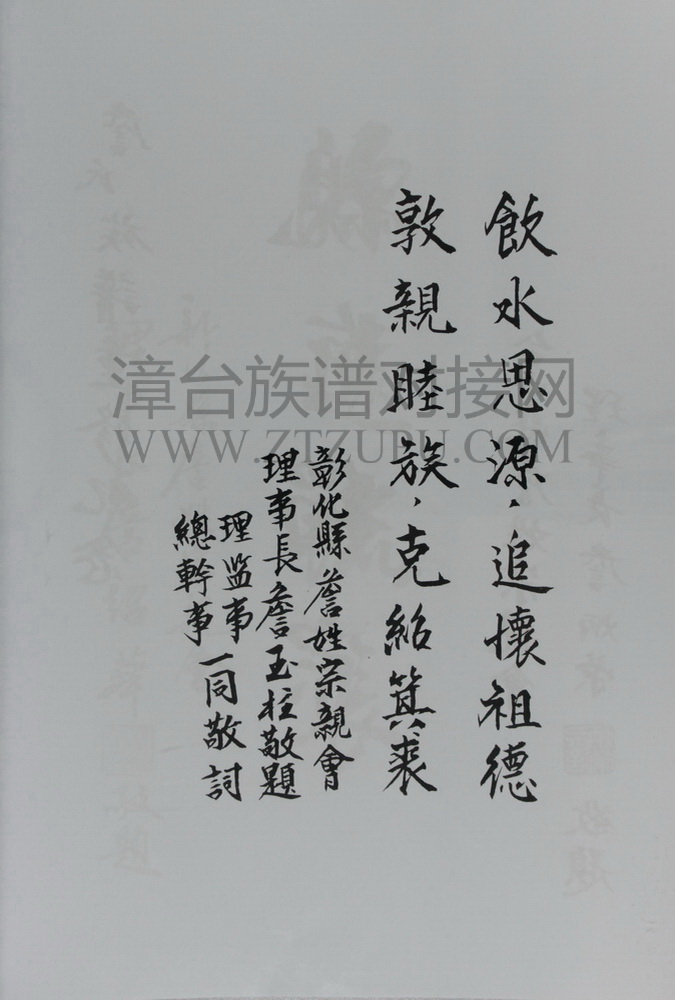 飲水思源，追懷祖德
敦親睦族，克紹箕裘
彰化縣詹姓宗親會
理事長詹玉柱敬題
理監事
總幹事
一同敬詞
漳台族谱对接网
WWW.ZTZUPU.COM